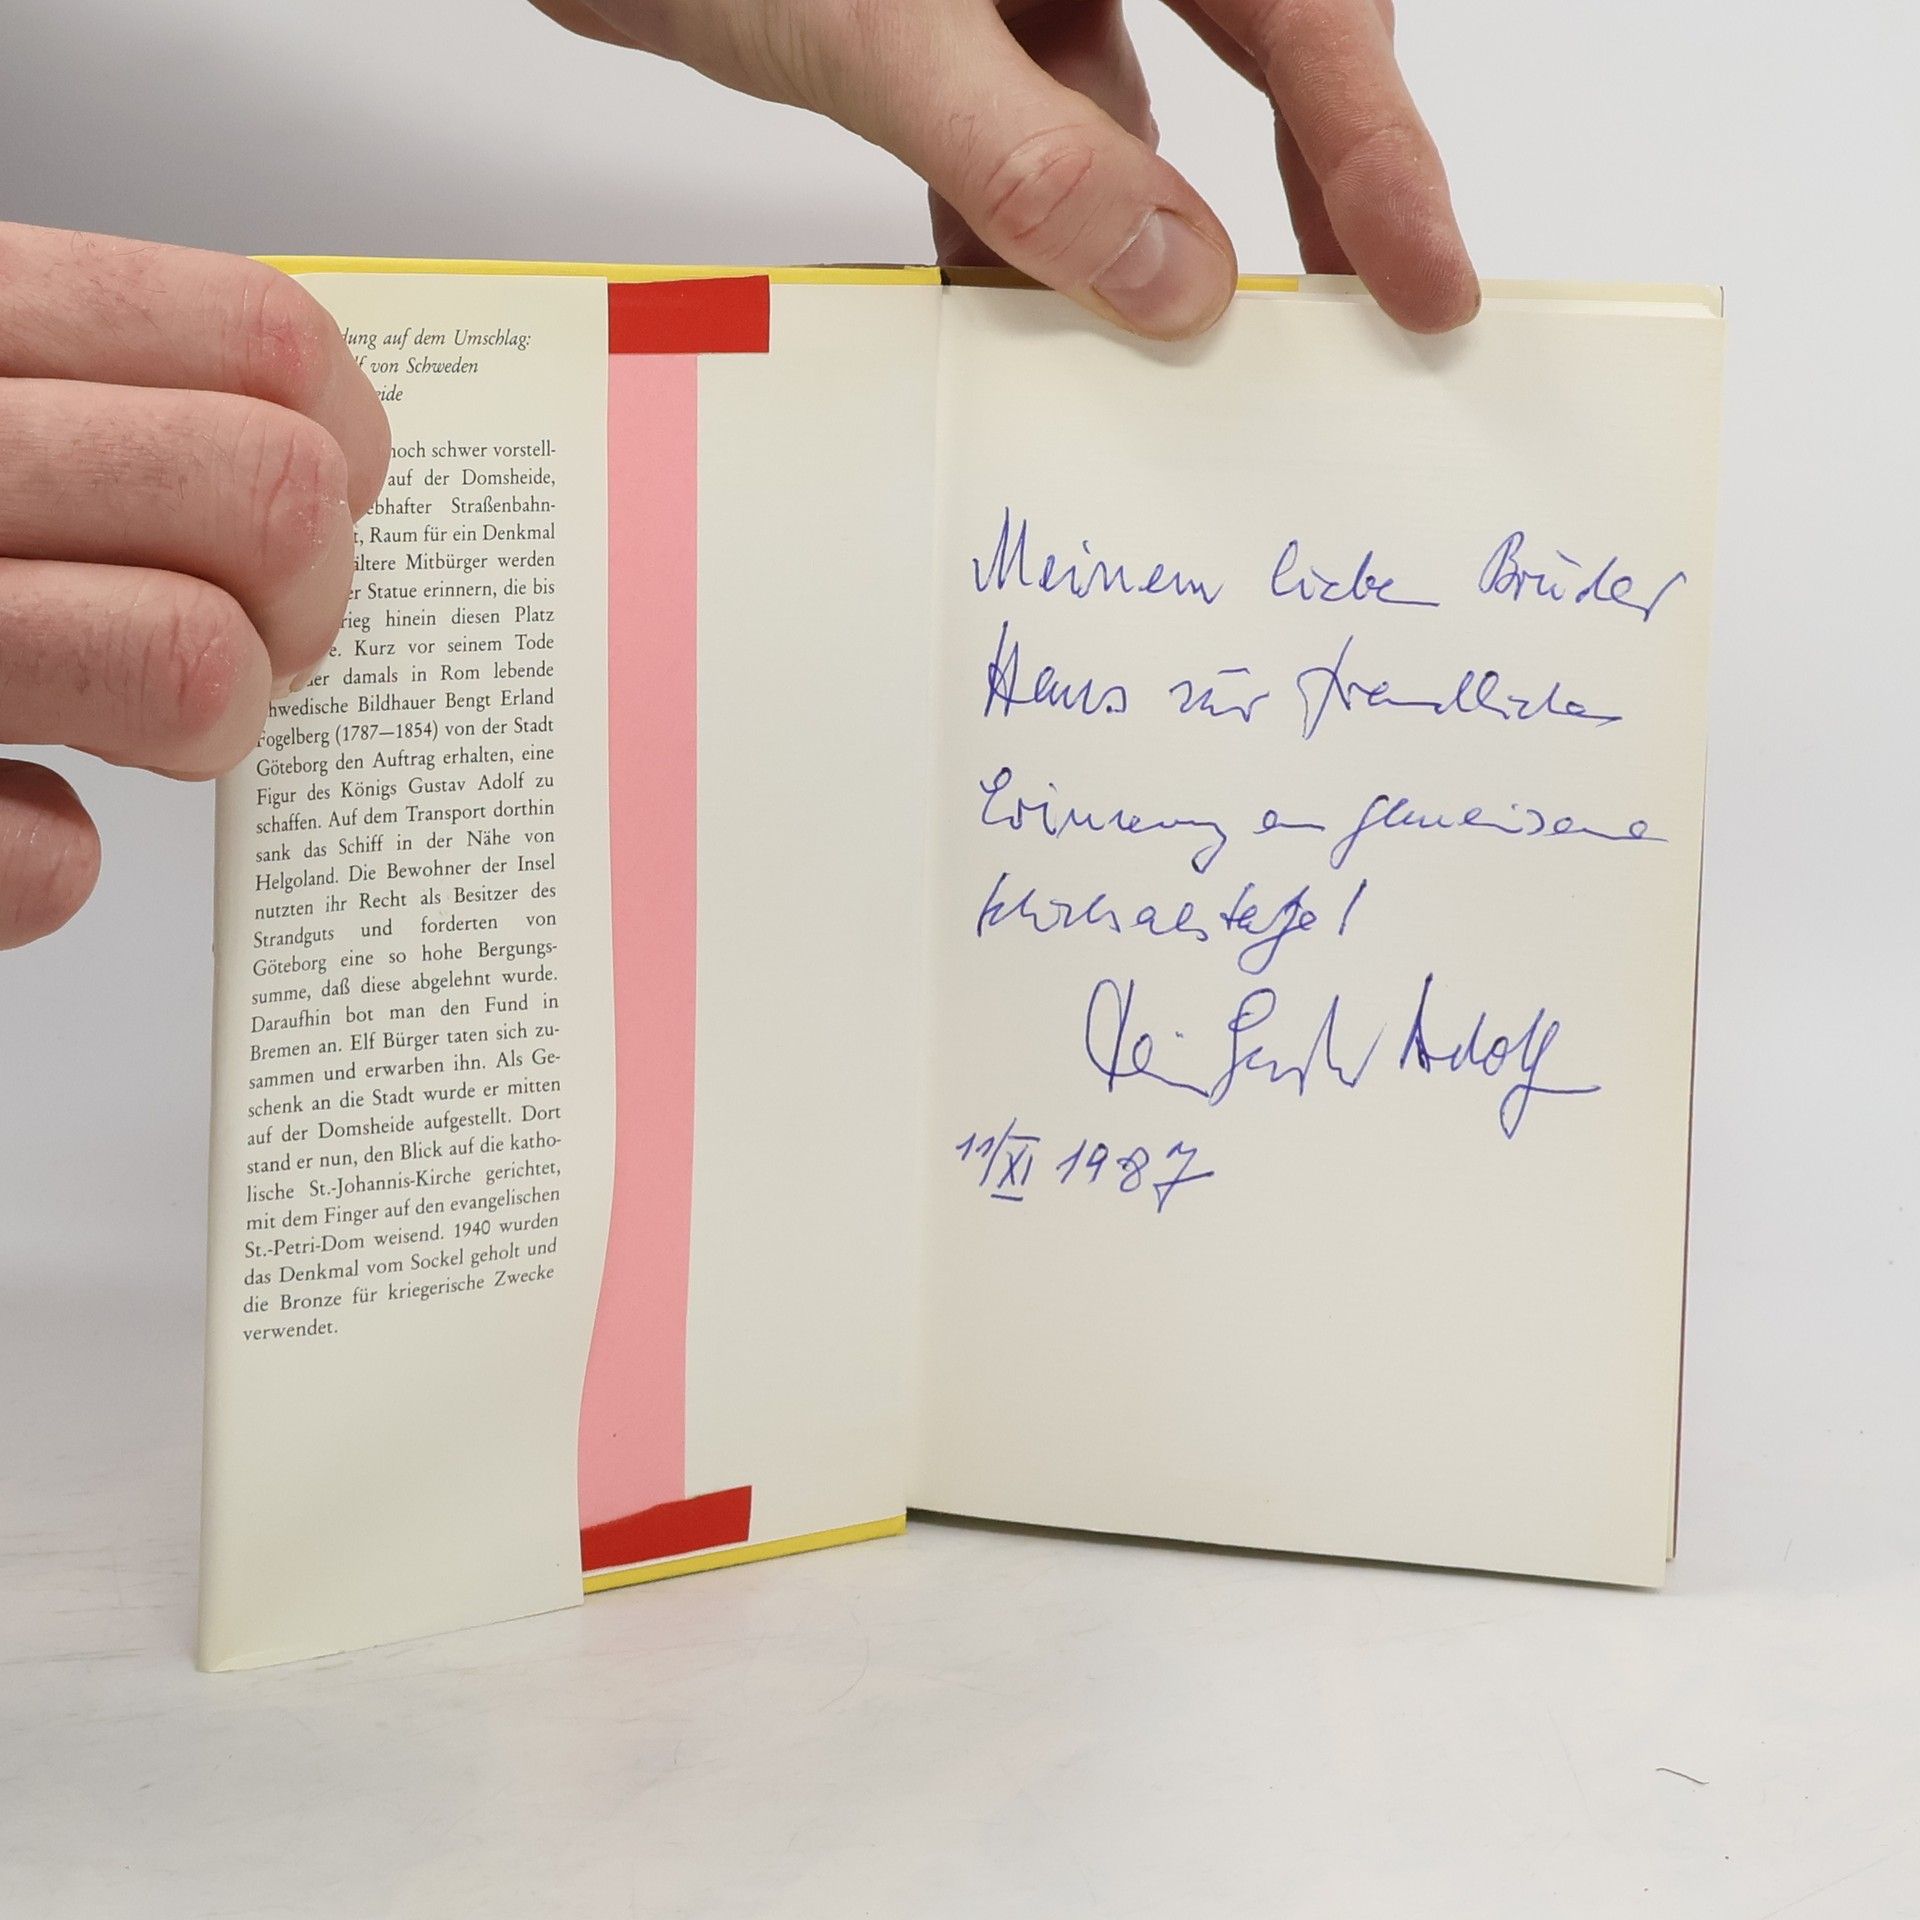 dung auf dem Umschlag:
lf von Schweden
eide
noch schwer vorstell-
auf der Domsheide,
ebhafter Straßenbahn-
t, Raum für ein Denkmal
ältere Mitbürger werden
er Statue erinnern, die bis
rieg hinein diesen Platz
e. Kurz vor seinem Tode
der damals in Rom lebende
hwedische Bildhauer Bengt Erland
Fogelberg (1787—1854) von der Stadt
Göteborg den Auftrag erhalten, eine
Figur des Königs Gustav Adolf zu
schaffen. Auf dem Transport dorthin
sank das Schiff in der Nähe von
Helgoland. Die Bewohner der Insel
nutzten ihr Recht als Besitzer des
Strandguts und forderten von
Göteborg eine so hohe Bergungs-
summe, daß diese abgelehnt wurde.
Daraufhin bot man den Fund in
Bremen an. Elf Bürger taten sich zu-
sammen und erwarben ihn. Als Ge-
schenk an die Stadt wurde er mitten
auf der Domsheide aufgestellt. Dort
stand er nun, den Blick auf die katho-
lische St.-Johannis-Kirche gerichtet,
mit dem Finger auf den evangelischen
St.-Petri-Dom weisend. 1940 wurden
das Denkmal vom Sockel geholt und
die Bronze für kriegerische Zwecke
verwendet.
Meinem lieben Bruder
Hans zur freundlichen
Erinnerung an gemeinsame
Schicksalstage!
Dein Gustav Adolf
11/XI 1987